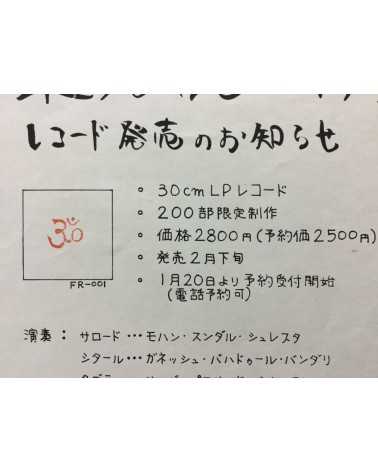 レコード発売のお知らせ
ॐ
FR-001
◦ 30cm LPレコード
◦ 200部限定制作
◦ 価格2800円(予約価2500円)
◦ 発売2月下旬
◦ 1月20日より予約受付開始
(電話予約可)
演奏: サロード…モハン・スンダル・シュレスタ
シタール…ガネッシュ・バハドゥール・バンダリ